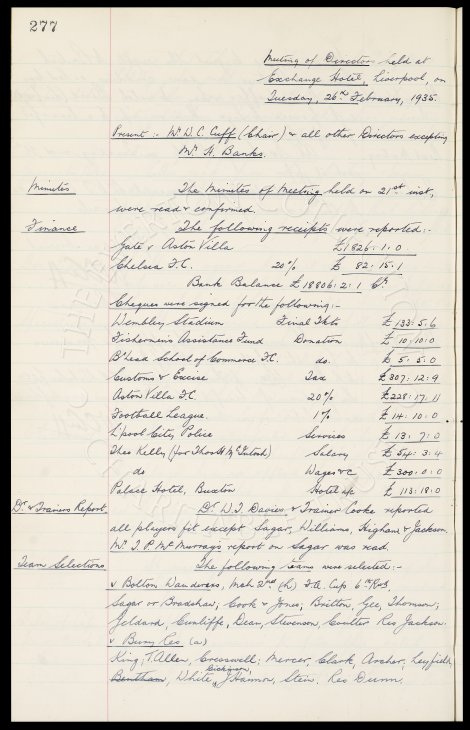 277
Meeting of Directors held at
Exchange Hotel, Liverpool, on
Tuesday, 26th February, 1935.
Present :- Mr W. C. Cuff (Chair) & all other Directors excepting
Mr. A. Banks.
Minutes The Minutes of Meeting held on 21st inst,
were read & confirmed.
Finance The following receipts were reported:-
Gate v Aston Villa £1826: 1. 0
Chelsea F.C. 20% £ 82. 15. 1
Bank Balance £18806: 2: 1 Cr
Cheques were signed for the following:-
Wembley Stadium Final Tkts £ 133: 5. 6
Fishermens Assistance Fund Donation £ 10: 10: 0
B'head School of Commerce F.C. do. £ 5. 5. 0
Customs & Excise Tax £307: 12: 9
Aston Villa F.C. 20% £228: 17. 11
Football League. 1% £ 14: 10. 0
L'pool City Police Services £ 13: 7: 0
Theo Kelly (for Thos H McIntosh) Salary £ 54: 3: 4
do Wages &c £ 300: 0: 0
Palace Hotel, Buxton Hotel a/c £ 113: 18: 0
Dr. & Trainers Report Dr. W. J. Davies & Trainer Cooke reported
all players fit except Sagar, Williams, Higham & Jackson.
Mr. T. P. McMurray's report on Sagar was read.
Team Selections The following teams were selected :-
v Bolton Wanderers, Mch 2nd (h) F.A. Cup 6th Rnd.
Sagar or Bradshaw; Cook & Jones; Britton, Gee, Thomson;
Geldard, Cunliffe, Dean, Stevenson, Coulter Res Jackson.
v Bury Res (a)
King; T. Allen, Cresswell; Mercer, Clark, Archer, Leyfield,
Dickinson
Bentham, White, J Hannon, Stein. Res Dunn.